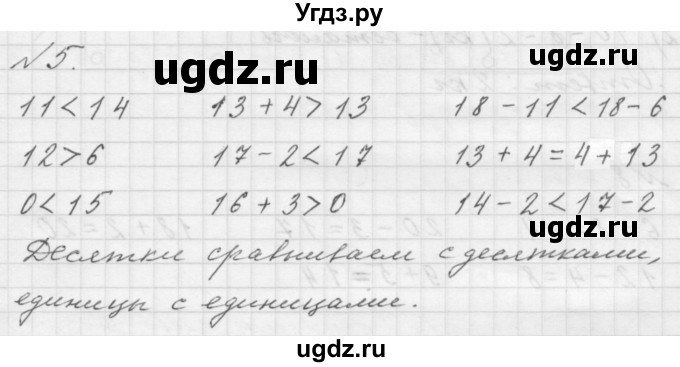 Угдз.ру
№5.
ugdz.ru
ugdz.ru
11 < 14 13 + 4 > 13 18 - 11 < 18 - 6
12 > 6 17 - 2 < 17 13 + 4 = 4 + 13
0 < 15 16 + 3 > 0 14 - 2 < 17 - 2
ugdz.ru
ugdz.ru
Десятки сравниваем с десятками,
единицы с единицами.
ugdz.ru